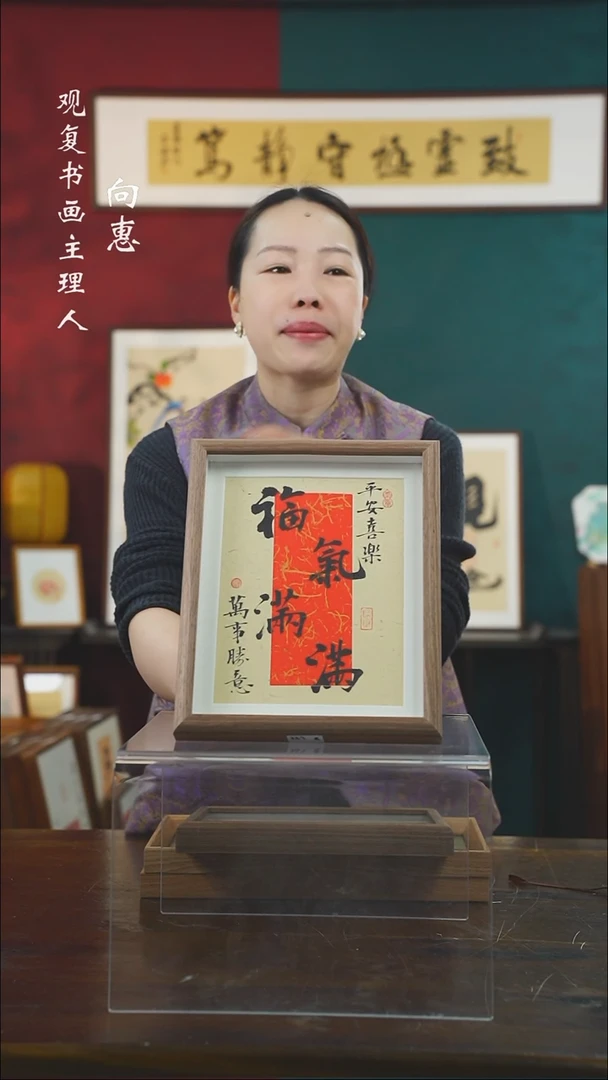 致虛極守靜篤
向惠
观复书画主理人
平安喜樂
福氣滿滿
萬事勝意